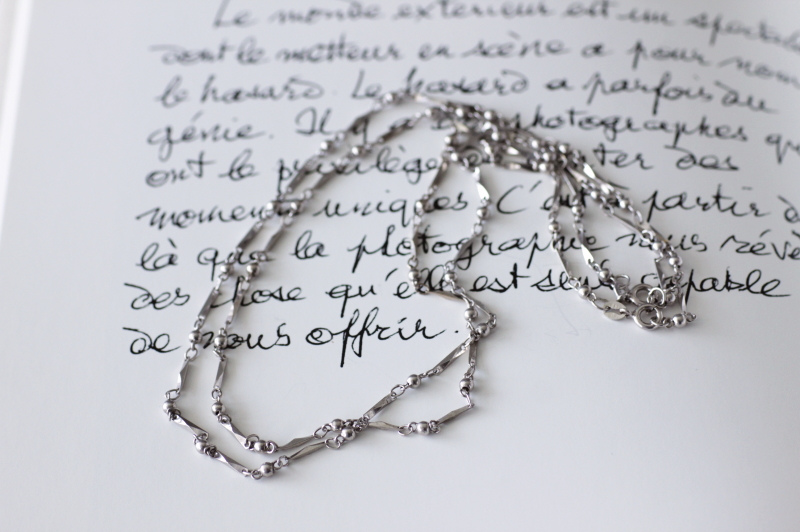 Le monde extérieur est un
dont le metteur en scène a pour nom
le hasard. Le hasard a parfois du
génie. Il photographes
ont le privilège des
moments uniques. C'est à partir
là que la photographie nous révè
des chose qu'elle est seule capable
de nous offrir.